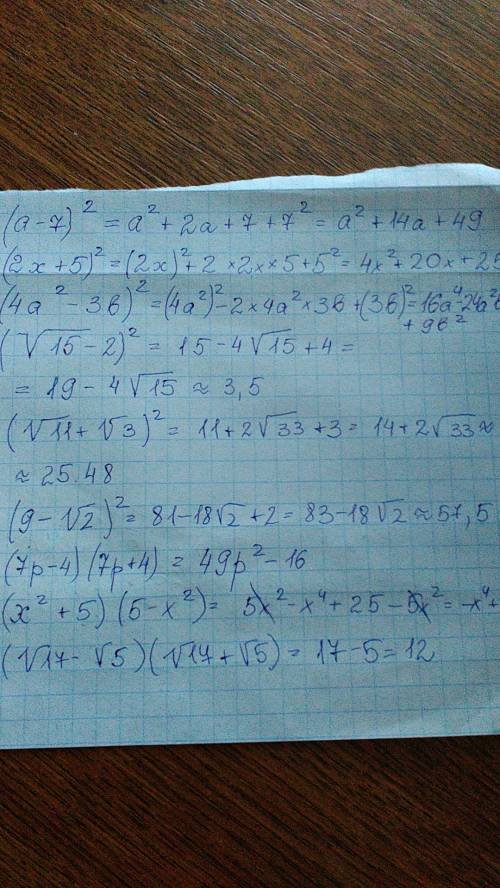 (a-7)² = a² + 2a + 7 + 7² = a² + 14a + 49
(2x+5)² = (2x)² + 2 × 2x × 5 + 5² = 4x² + 20x + 25
(4a² - 3в)² = (4a²)² - 2 × 4a² × 3в + (3в)² = 16a⁴ - 24a²в
+ 9в²
(√15 - 2)² = 15 - 4√15 + 4 =
= 19 - 4√15 ≈ 3,5
(√11 + √3)² = 11 + 2√33 + 3 = 14 + 2√33 ≈
≈ 25.48
(9 - √2)² = 81 - 18√2 + 2 = 83 - 18√2 ≈ 57,5
(7p-4)(7p+4) = 49p² - 16
(x² + 5)(5 - x²) = 5x² - x⁴ + 25 - 5x² = -x⁴ +
(√17 - √5)(√17 + √5) = 17 - 5 = 12